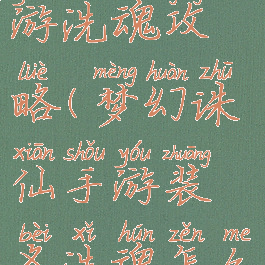 游洗魂攻
lüè mèng huàn zhū
略(梦幻诛
xiān shǒu yóu zhuāng
仙手游装
bèi xǐ hún zěn me
备洗魂怎么